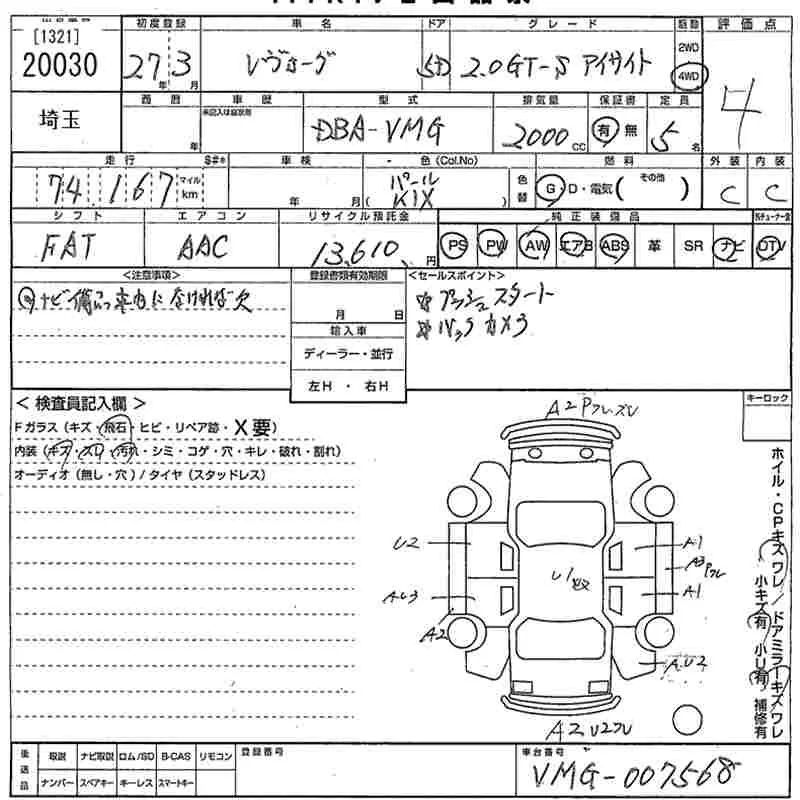 [1321]
20030
初度登録 車名 ドア グレード 駆動 評価点
27年 3月 レヴォーグ 5D 2.0GT-S アイサイト 2WD 4WD
4
埼玉
西暦 車歴 型式 排気量 保証書 定員
年 未記入は自家用 DBA-VMG 2000cc 有 無 5名
走行 S#* 車検 色(Col.No) 燃料 外装 内装
74,167 マイル km 年 月 パール K1X ( ) 色替 G・D・電気( その他 ) C C
シフト エアコン リサイクル預託金 純正装備品
FAT AAC 13,610円 PS PW AW エアB ABS 革 SR ナビ DTV
<注意事項> 登録書類有効期限 <セールスポイント>
月 日
☆プッシュスタート
☆バックカメラ
輸入車
ディーラー・並行
左H ・ 右H
キーロック
<検査員記入欄>
Fガラス(キズ・飛石・ヒビ・リペア跡・X要)
内装(キズ・スレ・汚れ・シミ・コゲ・穴・キレ・破れ・割れ)
オーディオ(無し・穴)/タイヤ(スタッドレス)
A2Pフレ,ズレ
U2 A1
A3Pフレ
U1
AU3 A1
A2
AU2
A2U2フレ
ホイル・CPキズワレ/ドアミラーキズワレ
小キズ有 小U有 補修有
後送品 取説 ナビ取説 ロム/SD B-CAS リモコン 登録番号 車台番号
ナンバー スペアキー キーレス スマートキー VMG-007568